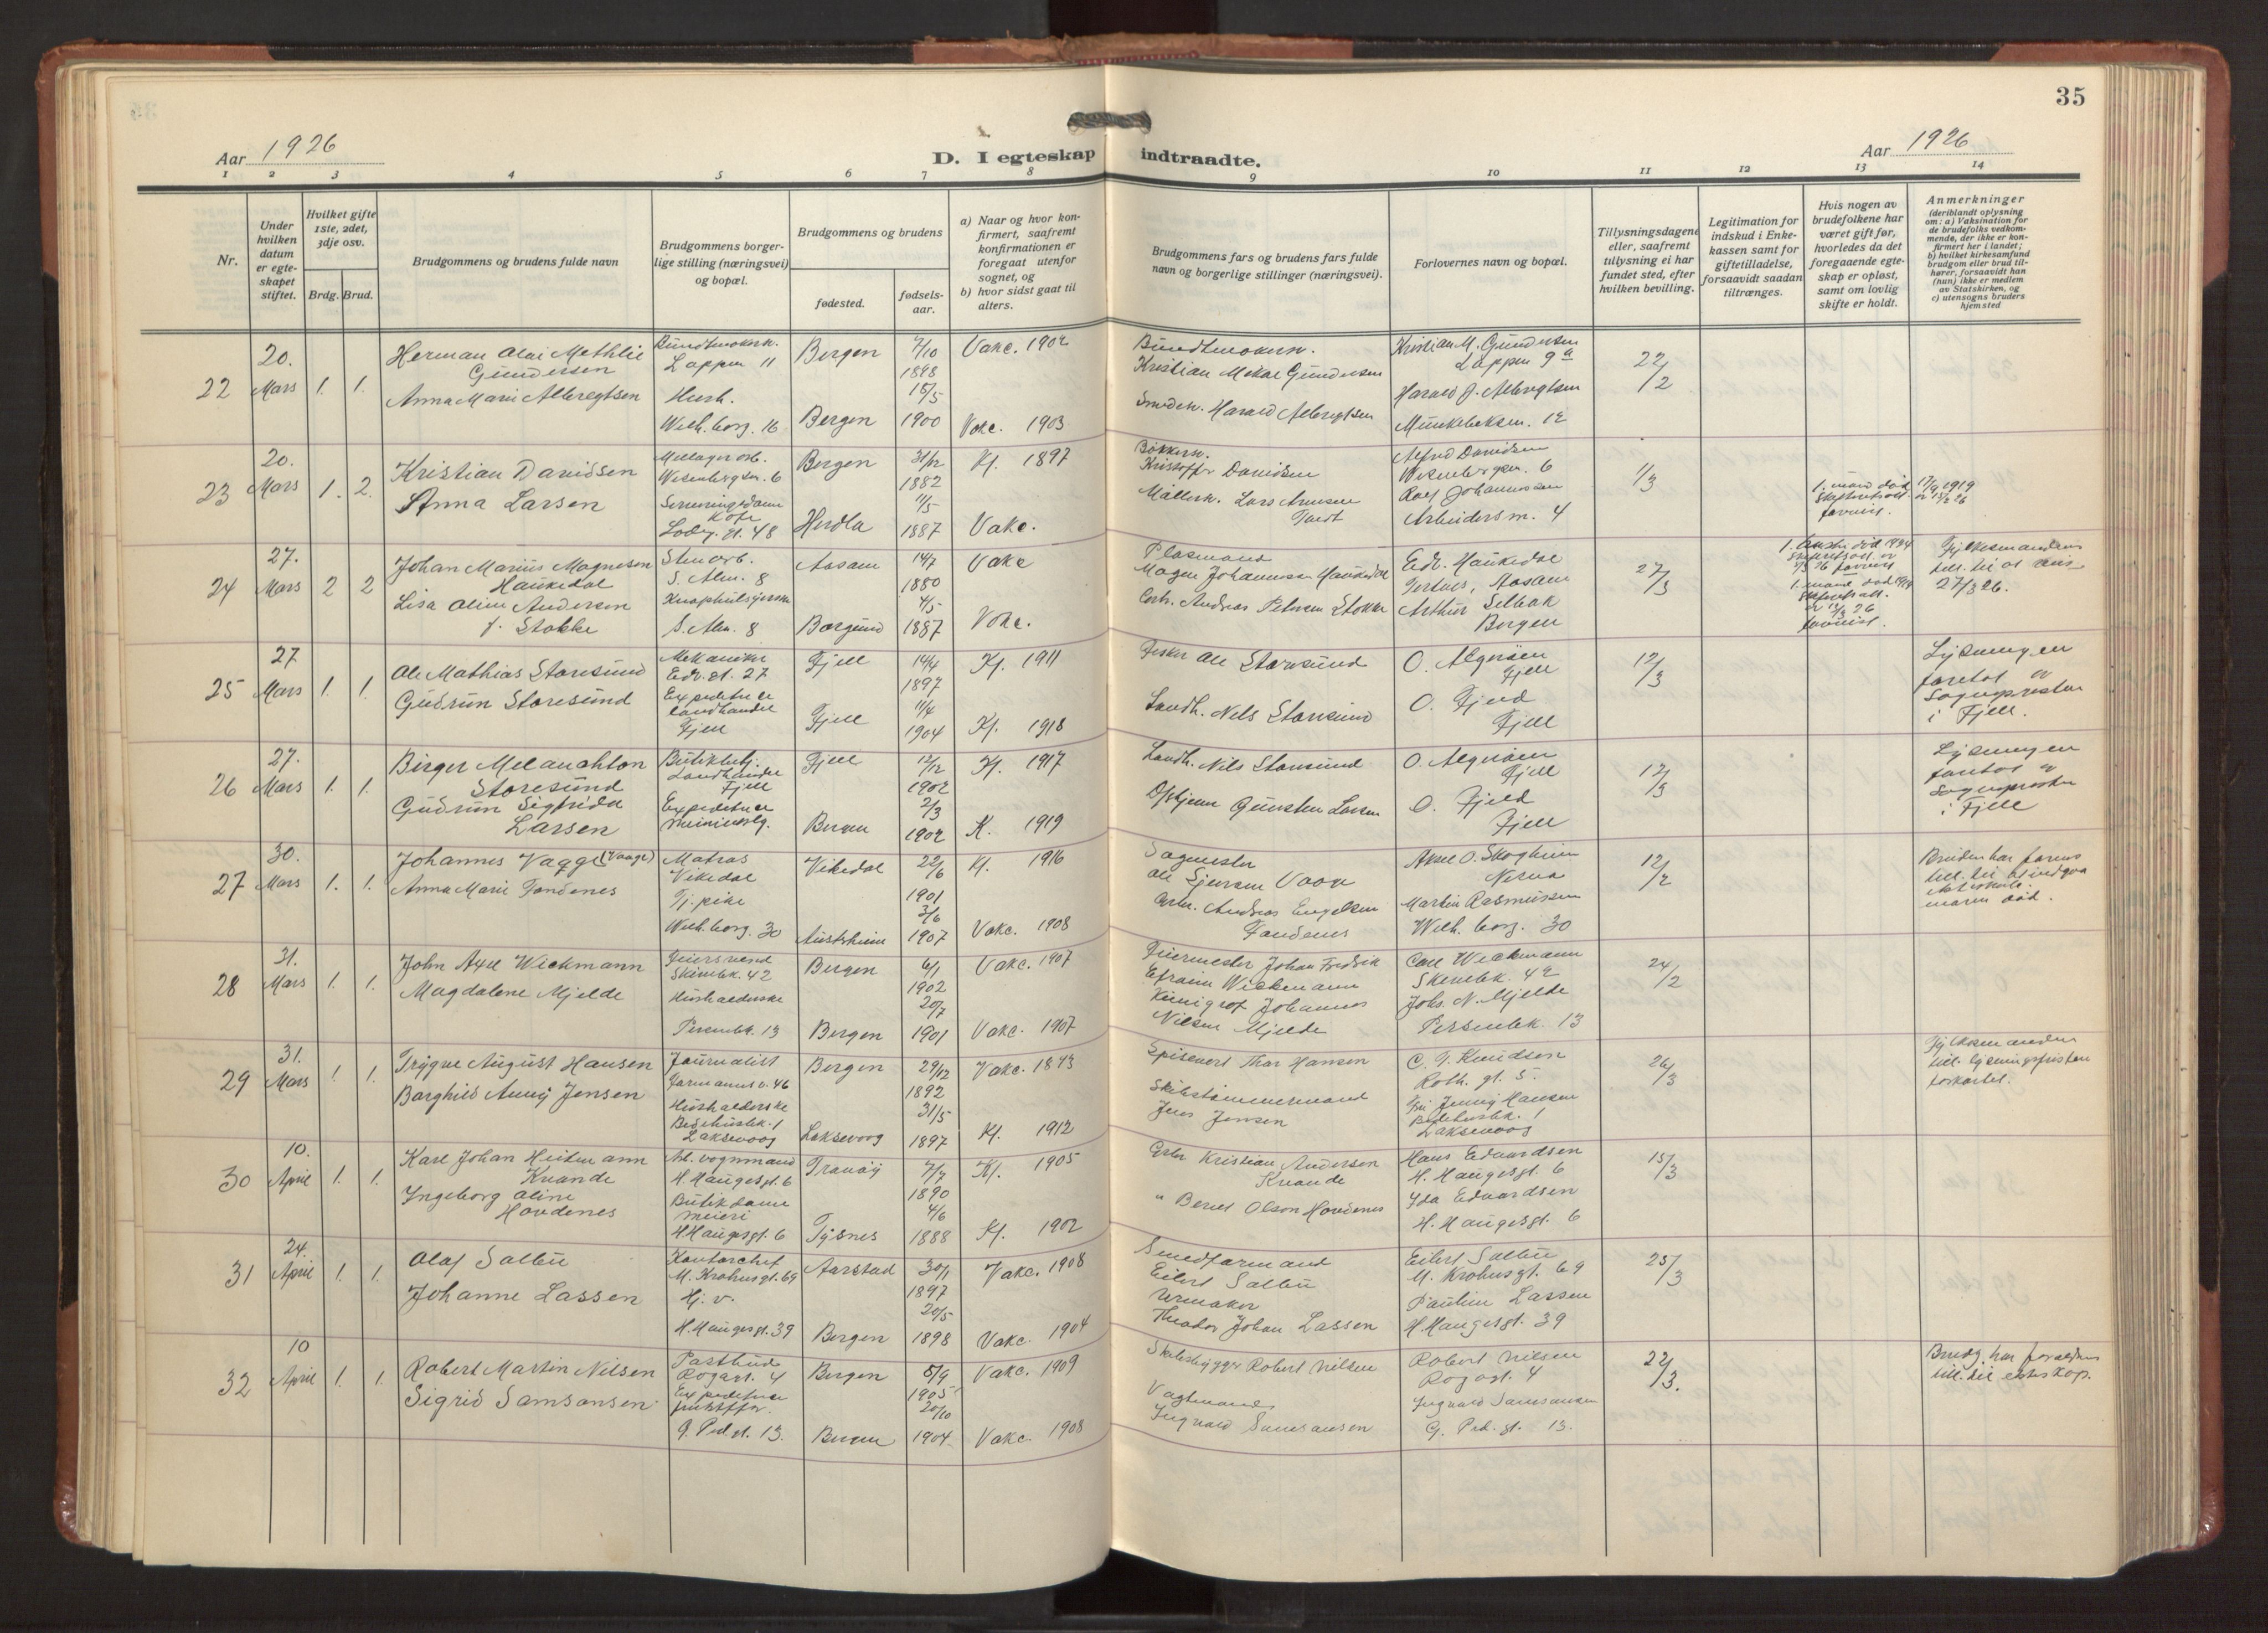 35
Aar 1926
D. I egteskap indtraadte.
Aar 1926
1 2 3 4 5 6 7 8 9 10 11 12 13 14
Nr.
Under
hvilken
datum
er egte-
skapet
stiftet.
Hvilket gifte
1ste, 2det,
3dje osv.
Brdg. Brud.
Brudgommens og brudens fulde navn
Brudgommens borger-
lige stilling (næringsvei)
og bopæl.
Brudgommens og brudens
fødested.
fødsels-
aar.
a) Naar og hvor kon-
firmert, saafremt
konfirmationen er
foregaat utenfor
sognet, og
b) hvor sidst gaat til
alters.
Brudgommens fars og brudens fars fulde
navn og borgerlige stillinger (næringsvei).
Forlovernes navn og bopæl.
Tillysningsdagene
eller, saafremt
tillysning ei har
fundet sted, efter
hvilken bevilling.
Legitimation for
indskud i Enke-
kassen samt for
giftetilladelse,
forsaavidt saadan
tiltrænges.
Hvis nogen av
brudefolkene har
været gift før,
hvorledes da det
foregaaende egte-
skap er opløst,
samt om lovlig
skifte er holdt.
Anmerkninger
(deriblandt oplysning
om: a) Vaksination for
de brudefolks vedkom-
mende, der ikke er kon-
firmert her i landet;
b) hvilket kirkesamfund
brudgom eller brud til-
hører, forsaavidt han
(hun) ikke er medlem
av Statskirken, og
c) utensogns bruders
hjemsted
22
20.
Mars
1. 1.
Herman Olai Methlie
Gundersen
Anna Marie Albregtsen
Buntmakersv.
Lappen 11
Hush.
Wilh. borg. 16
Bergen
Bergen
7/10
1898
18/5
1900
Vakc. 1902
Vakc. 1903
Buntmakersv.
Kristian Mekal Gundersen
Smedsv. Harald Albregtsen
Kristian M. Gundersen
Lappen 9a
Harald J. Albregtsen
Munkebeksm. 12
22/2
23
20.
Mars
1. 2.
Kristian Davidsen
Anna Larsen
Wesenbergsm. 6
Serveringsdame
Kafe
Lodg. gt. 48
Bergen
Herdla
31/12
1882
11/5
1887
Kf. 1897
Vakc.
Bøkkersv.
Kristoffer Davidsen
Møllersv. Lars
Alfred Davidsen
Wesenbergsm. 6
Rolf Johannessen
Arbeidersm. 4
11/3
1. mand død 17/9 1919
Skifteretsatt. av 15/2 26
forevist.
24
27.
Mars
2 2
Johan Marius Magnesen
Haukedal
Lisa Oline Andersen
f. Stokke
Stenarb.
S. Alm. 8
Knaphulsyerske
S. Alm. 8
Aasane
Borgund
14/7
1880
4/5
1887
Vakc
Vakc.
Plasmand
Magne Johannessen Haukedal
Arb. Andreas Petersen Stokke
Edv. Haukedal
Tertnes, Aasane
Arthur Selbak
Bergen
27/3
1. hustru død 1924
Skifteretsatt. av
forevist
1. mand død
Skifteretsatt.
forevist.
Fylkesmandens
till. til
27/3 26.
25
27
Mars
1. 1.
Ole Mathias Storesund
Gudrun Storesund
Mekaniker
Edv. gt. 27
Expeditrice
landhandel
Fjell
Fjell
Fjell
14/4
1897
11/4
1904
Kf. 1911
Kf. 1918
Fisker Ole Storesund
Landh. Nils Storesund
O. Algrøen
Fjell
O. Fjeld
Fjell
12/3
Lysningen
foretat av
Sognepresten
i Fjell.
26
27.
Mars
1. 1.
Birger Melanchton
Storesund
Gudrun Sigfrida
Larsen
Butikbetj.
Landhandel
Fjell
Expeditrice
Fjell
Bergen
12/12
1902
2/3
1902
Kf. 1917
K. 1919
Landh. Nils Storesund
Gunsten Larsen
O. Algrøen
Fjell
O. Fjeld
Fjell
12/3
Lysningen
foretat av
Sognepresten
i Fjell
27
30.
Mars
1. 1.
Johannes Vagge (Vaage)
Anna Marie Fondenes
Matros
Vikedal
Tj. pike
Wilh. borg. 30
Vikedal
Austrheim
22/6
1901
3/6
1907
Kf. 1916
Vakc. 1908
Sagmester
Ole Sjursen Vaage
Arb. Andreas Engelsen
Fondenes
Aksel O. Skogheim
Martin Rasmussen
Wilh. borg. 30
12/2
Bruden har farens
till. til at indgaa
moren død.
28
31.
Mars
1. 1.
John Axel Wickmann
Magdalene Mjelde
Feiersvend
Skivebk. 42
Husholderske
Persenbk. 13
Bergen
Bergen
6/1
1902
20/7
1901
Vakc. 1907
Vakc. 1907
Feiermester Johan Fredrik
Efraim Wickmann
Johannes
Nilsen Mjelde
Carl Wickmann
Skivebk. 42
Johs. N. Mjelde
Persenbk. 13
24/2
29
31.
Mars
1. 1.
Trygve August Hansen
Borghild Anny Jensen
Journalist
Formanns v. 46
Husholderske
Bedehusbk. 1
Laksevaag
Bergen
Laksevaag
29/12
1892
31/5
1897
Vakc. 1893
Kf. 1912
Spisevert Thor Hansen
Skibstømmermand
Jens Jensen
C. T. Knudsen
Roth. gt. 5.
Fru Jenny Hansen
Bedehusbk. 1
Laksevaag
26/3
Fylkesmanden
till. lysningsfristen
forkortet.
30
10.
April
1. 1.
Karl Johan Heitmann
Knande
Ingeborg Oline
Hovdenes
Arb. vognmand
H. Haugesgt. 6
Butikdame
meieri
H. Haugesgt. 6
Tranøy
Tysnes
7/7
1890
4/6
1888
Kf. 1905
Kf. 1902
Gbr. Kristian Andersen
Knande
" Berret Olson Hovdenes
Hans Edvardsen
H. Haugesgt. 6
Ida Edvardsen
H. Haugesgt. 6
15/3
31
24.
April
1. 1.
Olaf Salbu
Johanne Lassen
Kontorchef
M. Krohnsgt. 69
Hj. v.
H. Haugesgt. 39
Aarstad
Bergen
30/1
1897
20/5
1898
Vakc. 1908
Vakc. 1904
Smedformand
Eilert Salbu
Urmaker
Theodor Johan Lassen
Eilert Salbu
M. Krohnsgt. 69
Pauline Lassen
H. Haugesgt. 39
25/3
32
10
April
1. 1.
Robert Martin Nilsen
Sigrid Samsonsen
Postbud
Rogagt. 4
Expeditrice
G. Ped. gt. 13.
Bergen
Bergen
8/9
1905
20/10
1904
Vakc. 1909
Vakc. 1908
Skibsbygger Robert Nilsen
Vagtmand
Ingvald Samsonsen
Robert Nilsen
Rogagt. 4
Ingvald Samsonsen
G. Ped. gt. 13.
22/3.
Brudg. har forældres
till. til ekteskap.